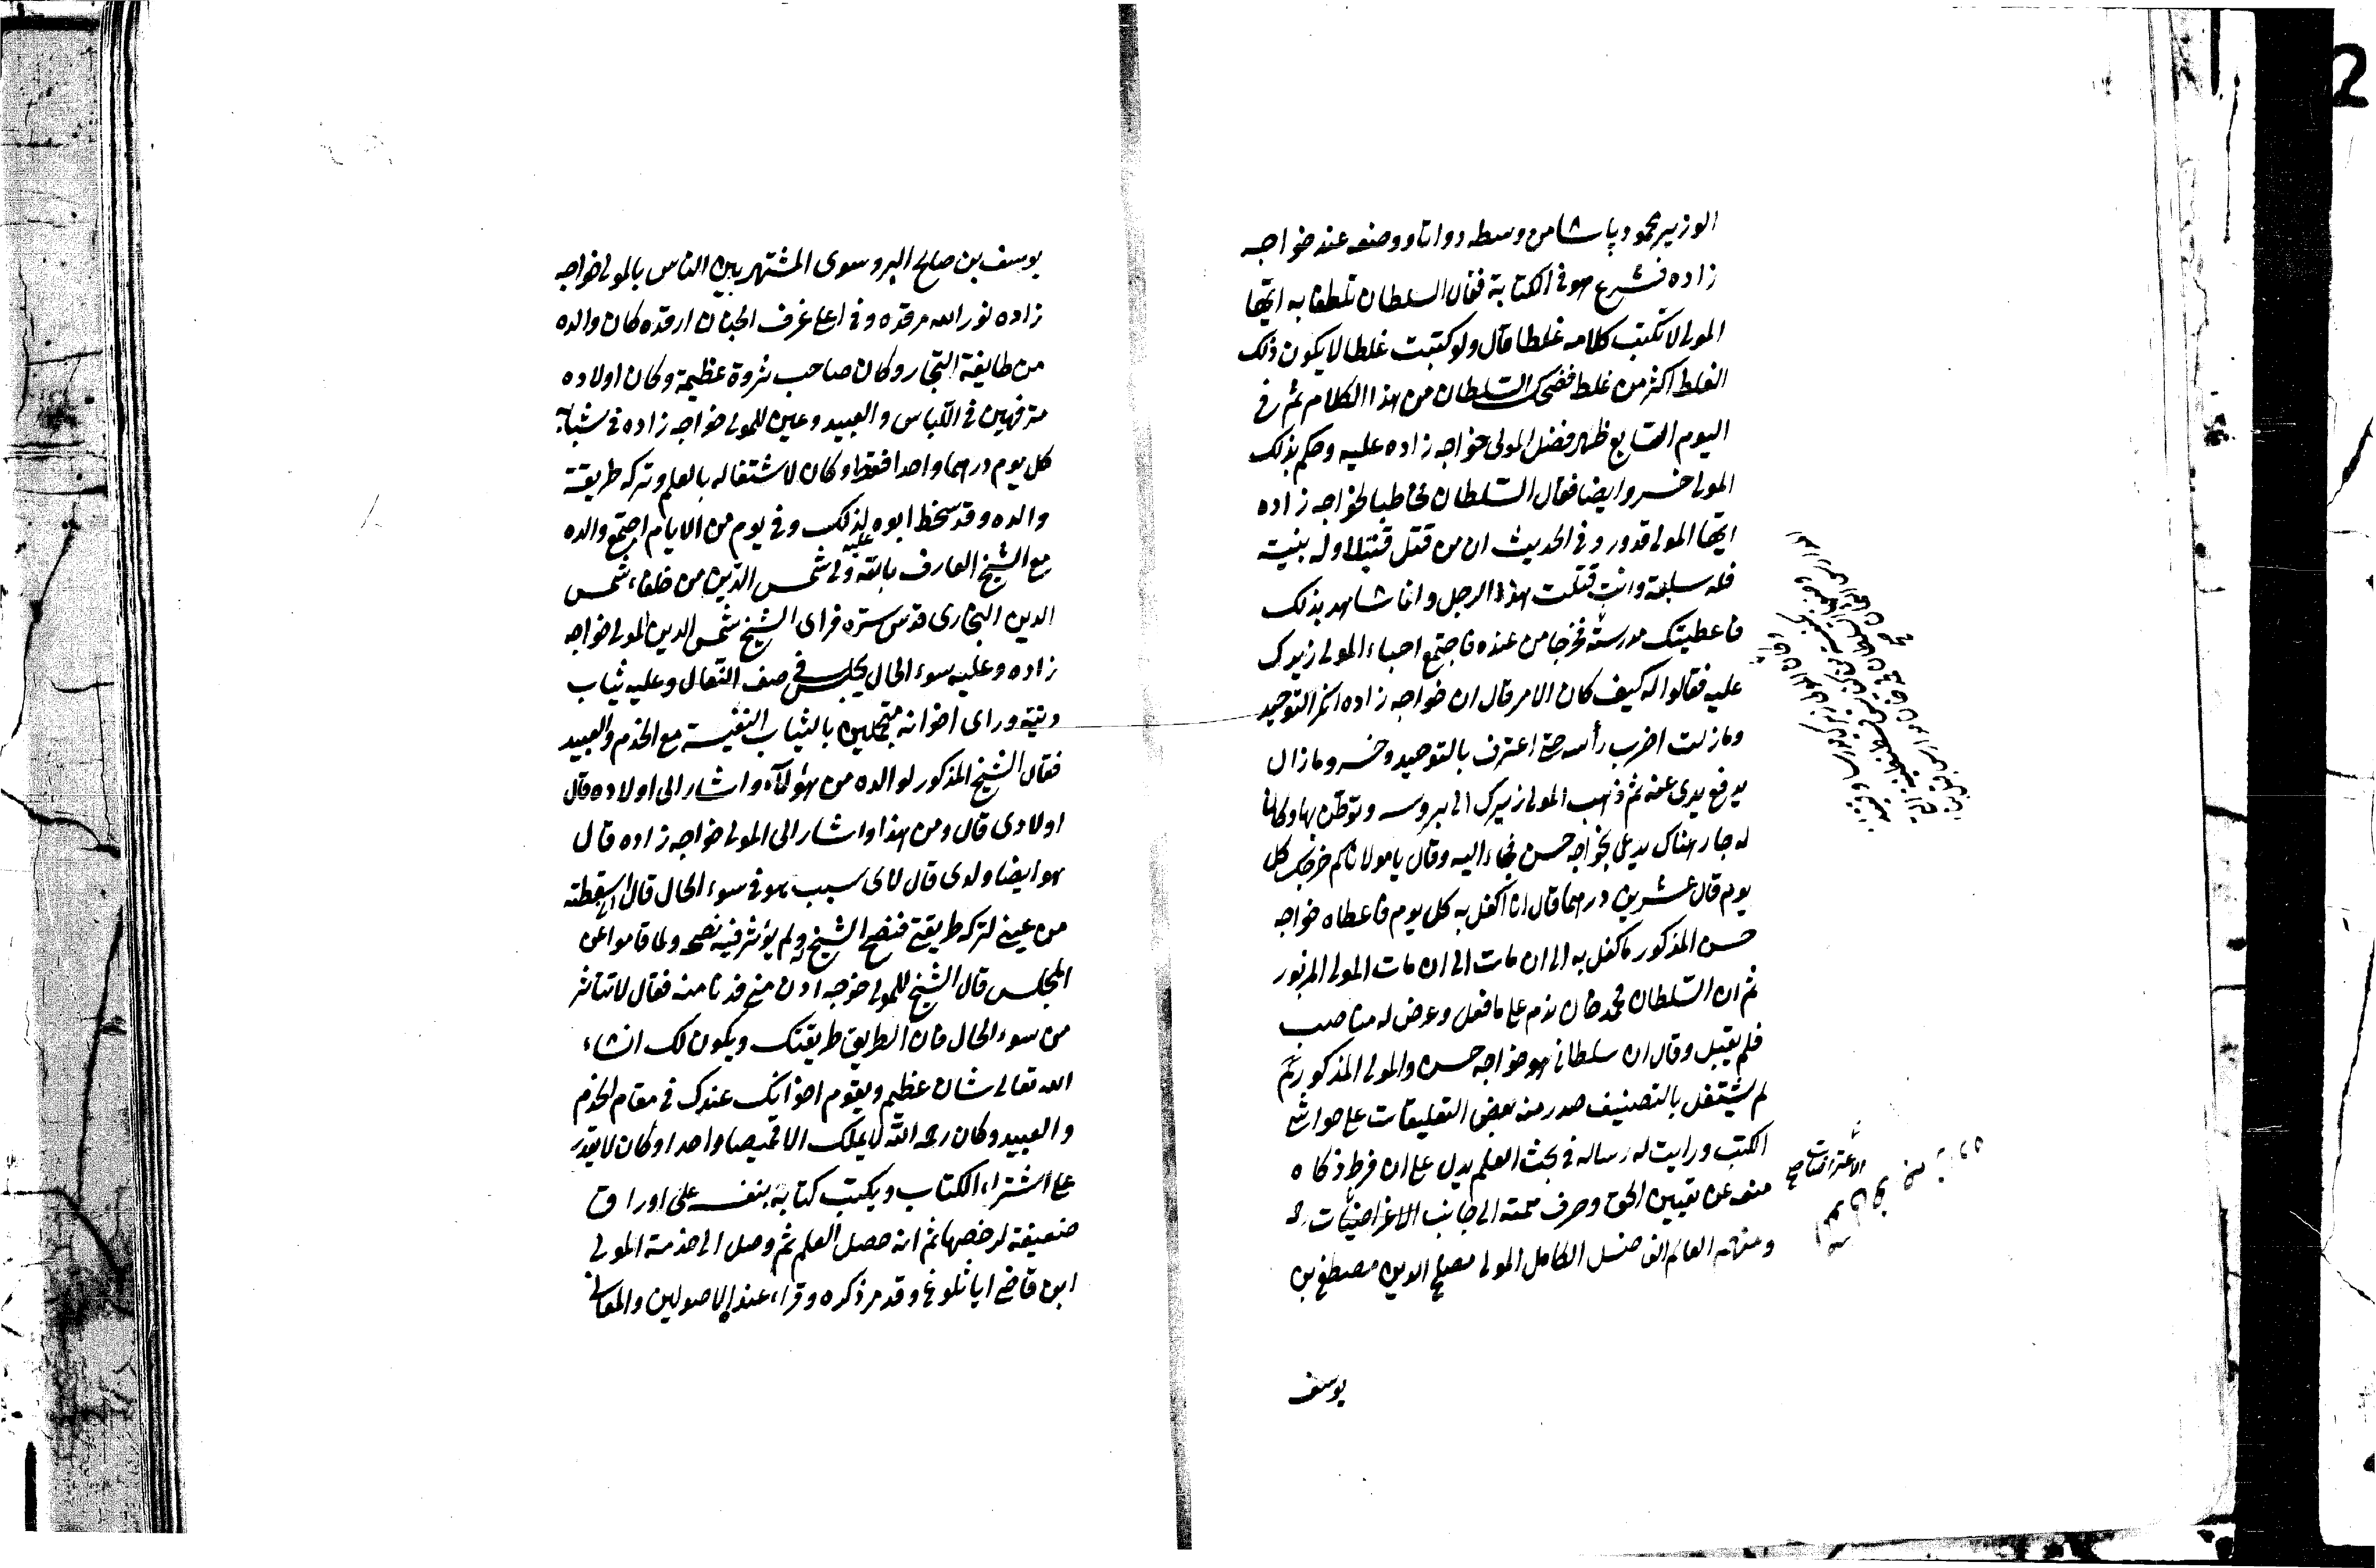 الوزير محمود پاشا من وسطه دواتا ووضعه عند خواجه
زاده فشرع هو فى الكتابة فقال السلطان تلطفا به ايها
المولى لا تكتب كلامه غلطا قال ولو كتبت غلطا لا يكون ذلك
الغلط اكثر من غلطه فضحك السلطان من هذا الكلام ثم فى
اليوم السابع ظهر فضل المولى خواجه زاده عليه وحكم بذلك
المولى خسرو ايضا فقال السلطان مخاطبا لخواجه زاده
ايها المولى قد ورد فى الحديث ان من قتل قتيلا وله بينة
فله سلبه وانت قتلت هذا الرجل وانا شاهد بذلك
فاعطيتك مدرسته فخرجا من عنده فاجتمع احباء المولى زيرك
عليه فقالوا له كيف كان الامر قال ان خواجه زاده انكر التوحيد
وما زلت اضرب رأسه حتى اعترف بالتوحيد وخسرو ما زال
يدفع يدى عنه ثم ذهب المولى زيرك الى بروسه وتوطن بها وكان
له جار هناك يدعى بخواجه حسن فجاء اليه وقال يا مولانا كم خرجك كل
يوم قال عشرين درهما قال انا اكفل به كل يوم فاعطاه خواجه
حسن المذكور ما كفل به الى ان مات الى ان مات المولى المزبور
ثم ان السلطان محمد خان ندم على ما فعل وعرض له مناصب
فلم يقبل وقال ان سلطانى هو خواجه حسن والمولى المذكور
لم يشتغل بالتصنيف صدر منه بعض التعليقات على حواشى
الكتب ورايت له رساله فى بحث العلم يدل على ان فرط ذكاه
منعه عن تعيين الحق وصرف همته الى جانب الاعتراضات
ومنهم العالم الفاضل الكامل المولى مصلح الدين مصطفى بن
الاعتراضات صح
يوسف
يوسف بن صالح البروسوى المشتهر بين الناس بالمولى خواجه
زاده نور الله مرقده وفى اعلى غرف الجنان ارقده كان والده
من طايفة التجار وكان صاحب ثروة عظيمة وكان اولاده
مترفهين فى اللباس والعبيد وعين للمولى خواجه زاده فى شبابه
كل يوم درهما واحدا فقط وكان لاشتغاله بالعلم وتركه طريقة
والده وقد سخط ابوه عليه لذلك وفى يوم من الايام اجتمع والده
مع الشيخ العارف بالله ولى شمس الدين من خلفاء شمس
الدين البخارى قدس سره فراى الشيخ شمس الدين المولى خواجه
زاده وعليه سوء الحال يجلس فى صف النعال وعليه ثياب
دنية وراى اخوانه متجملين بالثياب النفيسة مع الخدم والعبيد
فقال الشيخ المذكور لوالده من هؤلاء واشار الى اولاده قال
اولادى قال ومن هذا واشار الى المولى خواجه زاده قال
هو ايضا ولدى قال لاى سبب هو فى سوء الحال قال انى اسقطته
من عينى لتركه طريقتى فنصح الشيخ ولم يؤثر فيه نصحه ولما قاموا عن
المجلس قال الشيخ للمولى خوجه ادن منى فدنا منه فقال لا تتاثر
من سوء الحال فان الطريق طريقتك ويكون لك انشاء
الله تعالى شان عظيم ويقوم اخوانك عندك فى مقام الخدم
والعبيد وكان رحمه الله لا يملك الا قميصا واحدا وكان لا يقدر
على اشتراء الكتاب ويكتب كتابه بنفسه على اوراق
ضعيفة لرخصها ثم انه حصل العلم ثم وصل الى خدمة المولى
ابن قاضى اياثلوغ وقد مر ذكره وقراء عنده الاصولين والمعانى